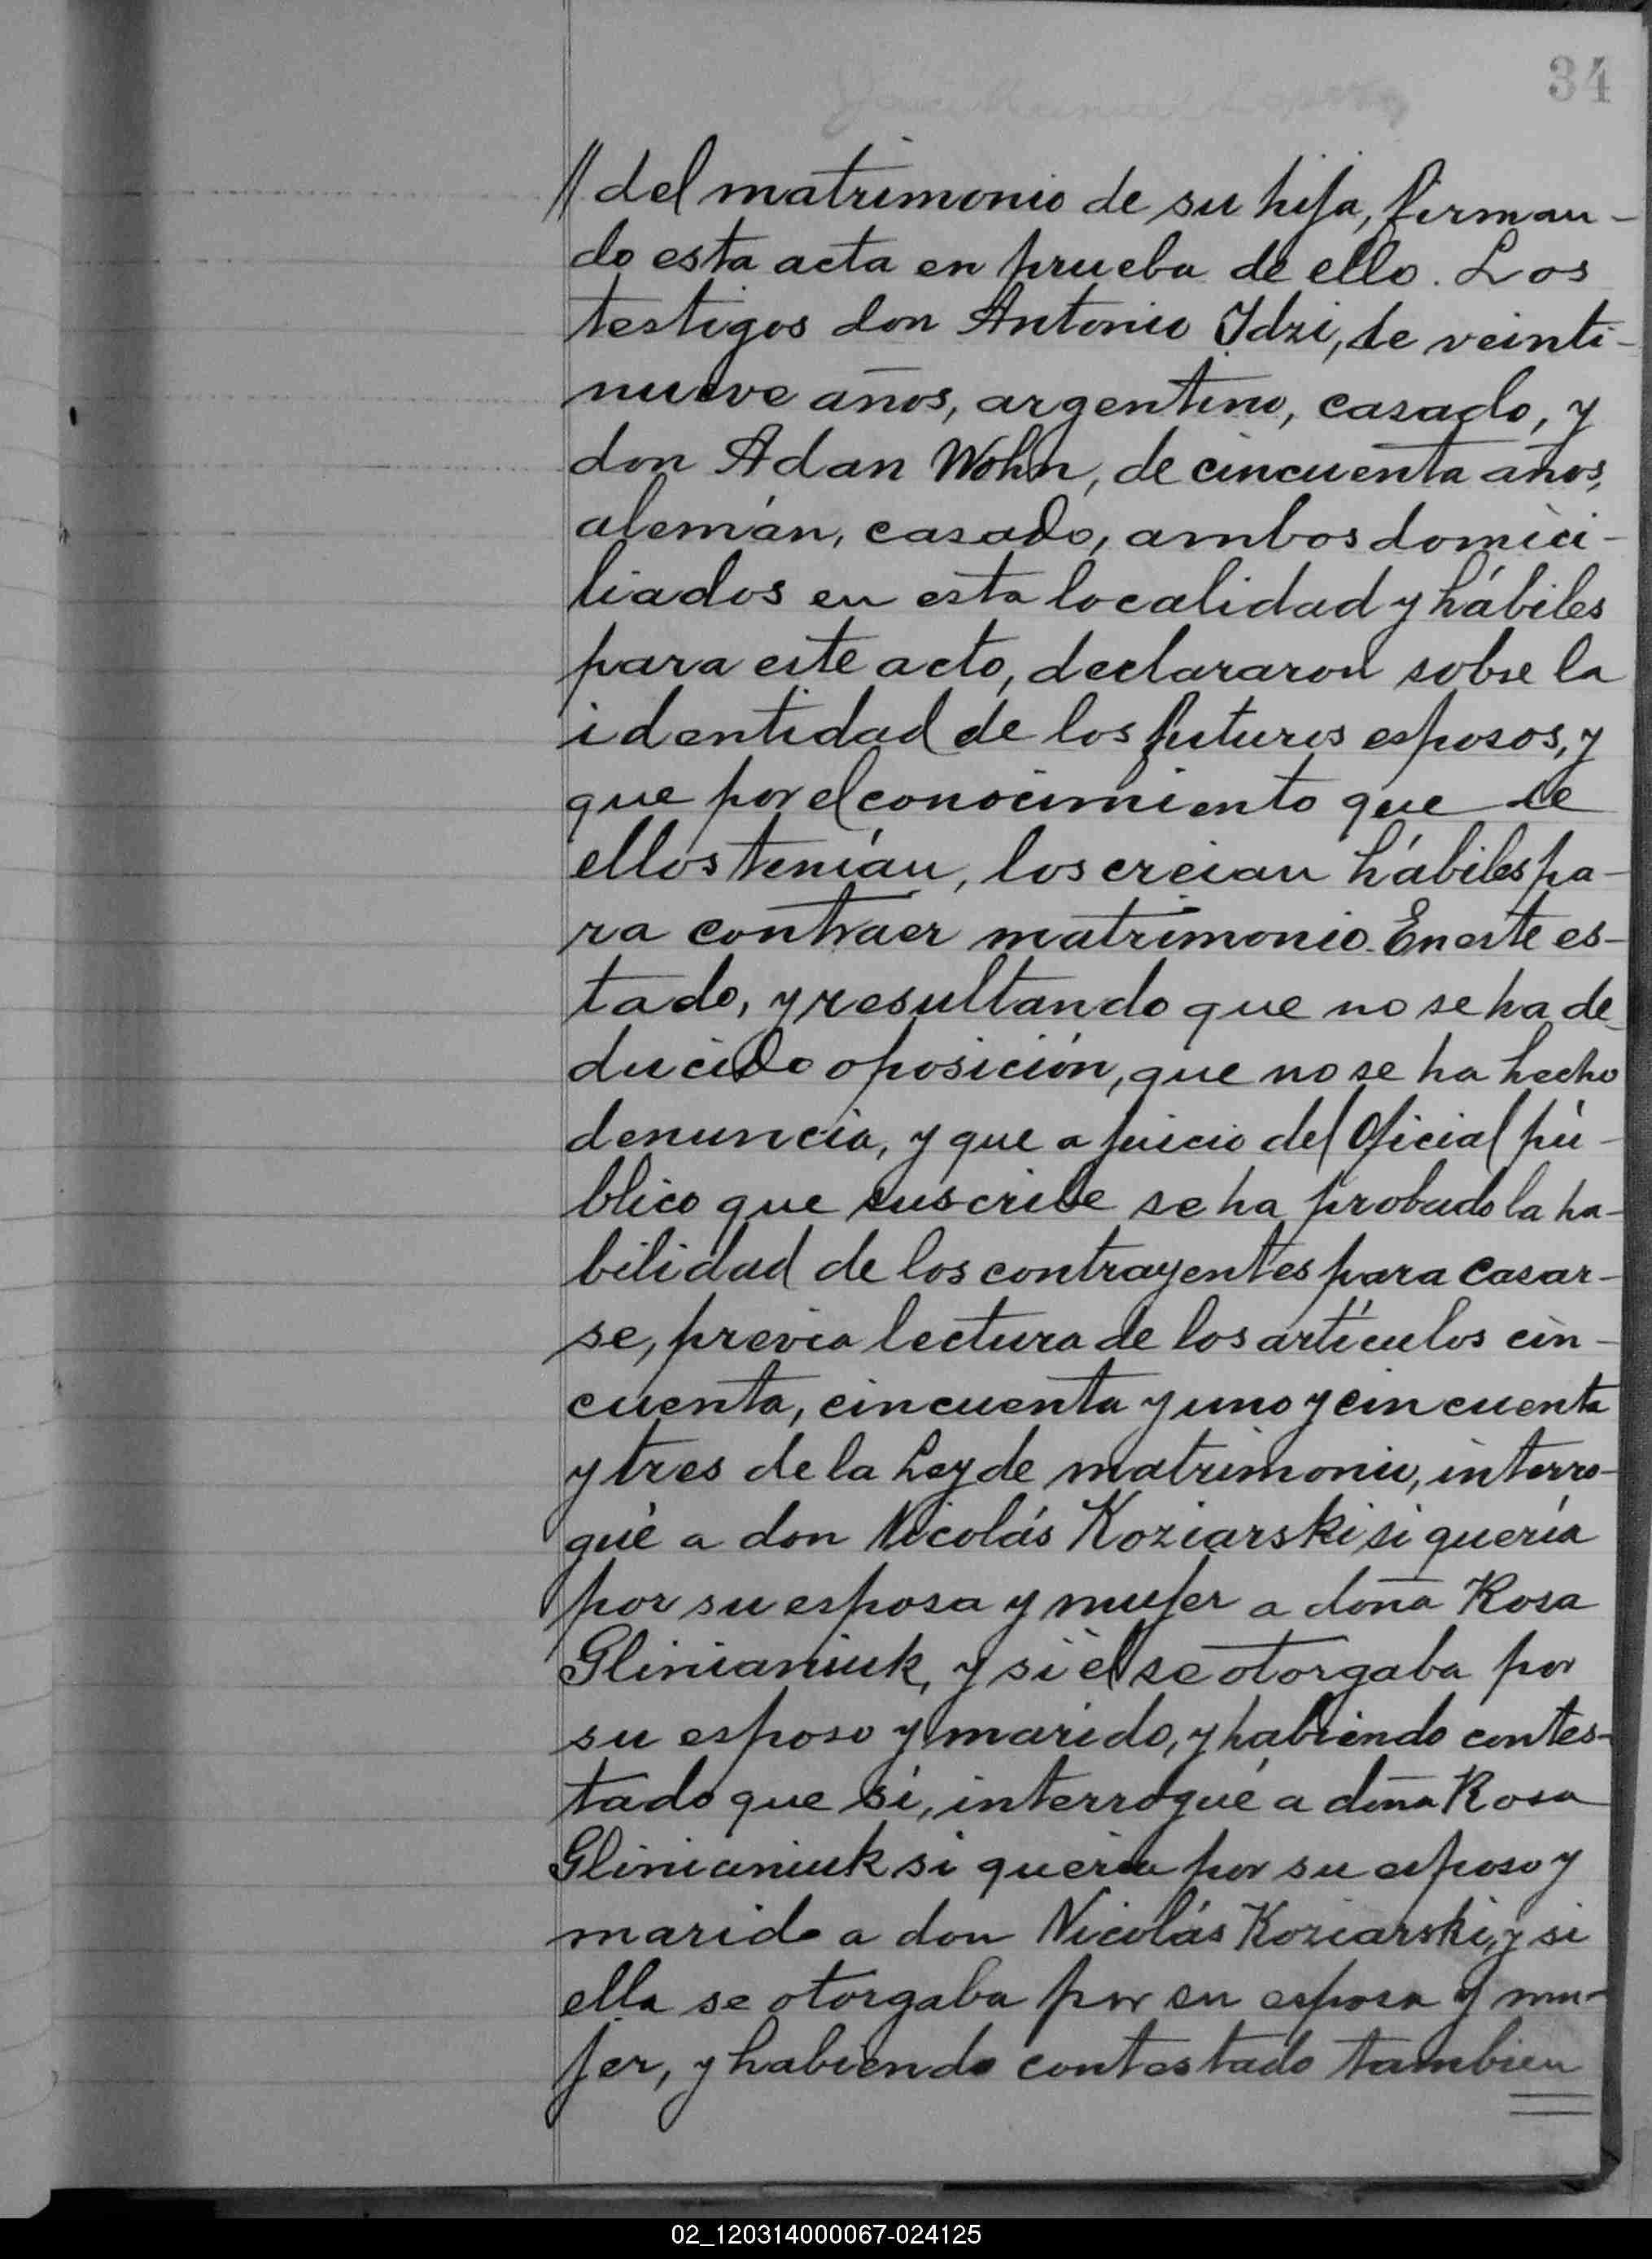 34
// del matrimonio de su hija, firman-
do esta acta en prueba de ello. Los
testigos don Antonio Idzi, de veinti-
nueve años, argentino, casado, y
don Adan Wohn, de cincuenta años,
alemán, casado, ambos domici-
liados en esta localidad y hábiles
para este acto, declararon sobre la
identidad de los futuros esposos, y
que por el conocimiento que de
ellos tenían, los creían hábiles pa-
ra contraer matrimonio. En este es-
tado, y resultando que no se ha de-
ducido oposición, que no se ha hecho
denuncia, y que a juicio del Oficial pú-
blico que suscribe se ha probado la ha-
bilidad de los contrayentes para casar-
se, previa lectura de los artículos cin-
cuenta, cincuenta y uno y cincuenta
y tres de la Ley de matrimonio, interro-
gué a don Nicolás Koziarski si quería
por su esposa y mujer a doña Rosa
Glinianiuk, y si él se otorgaba por
su esposo y marido, y habiendo contes-
tado que sí, interrogué a doña Rosa
Glinianiuk si quería por su esposo y
marido a don Nicolás Koziarski, y si
ella se otorgaba por su esposa y mu-
jer, y habiendo contestado tambien
02_120314000067-024125